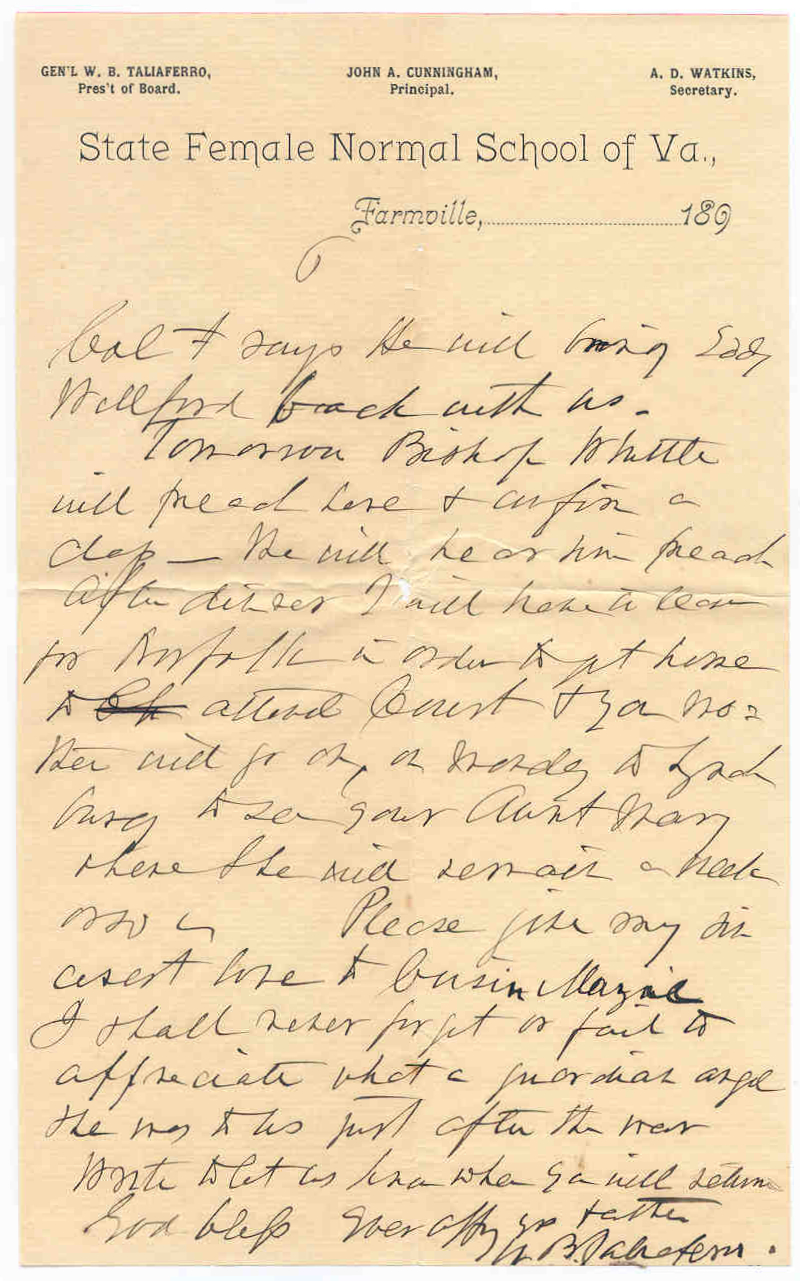 GEN'L W. B. TALIAFERRO,
Pres't of Board.
JOHN A. CUNNINGHAM,
Principal.
A. D. WATKINS,
Secretary.
State Female Normal School of Va.,
Farmville, 189
Col T says He will bring
Wellford back with us.
Tomorrow Bishop Whittle
will preach here & confirm a
class — We will hear him preach
After dinner I will have to leave
for Norfolk in order to get home
to attend Court & your Mo=
ther will go on, on Monday to Lynch
burg to see your Aunt Mary
where she will remain a week
or so Please give my sin
cerest love to Cousin
I shall never forget or fail to
appreciate what a guardian angel
she was to us just after the war
Write to let us know when you will return
God bless Ever affy yr father
W. B. Taliaferro.